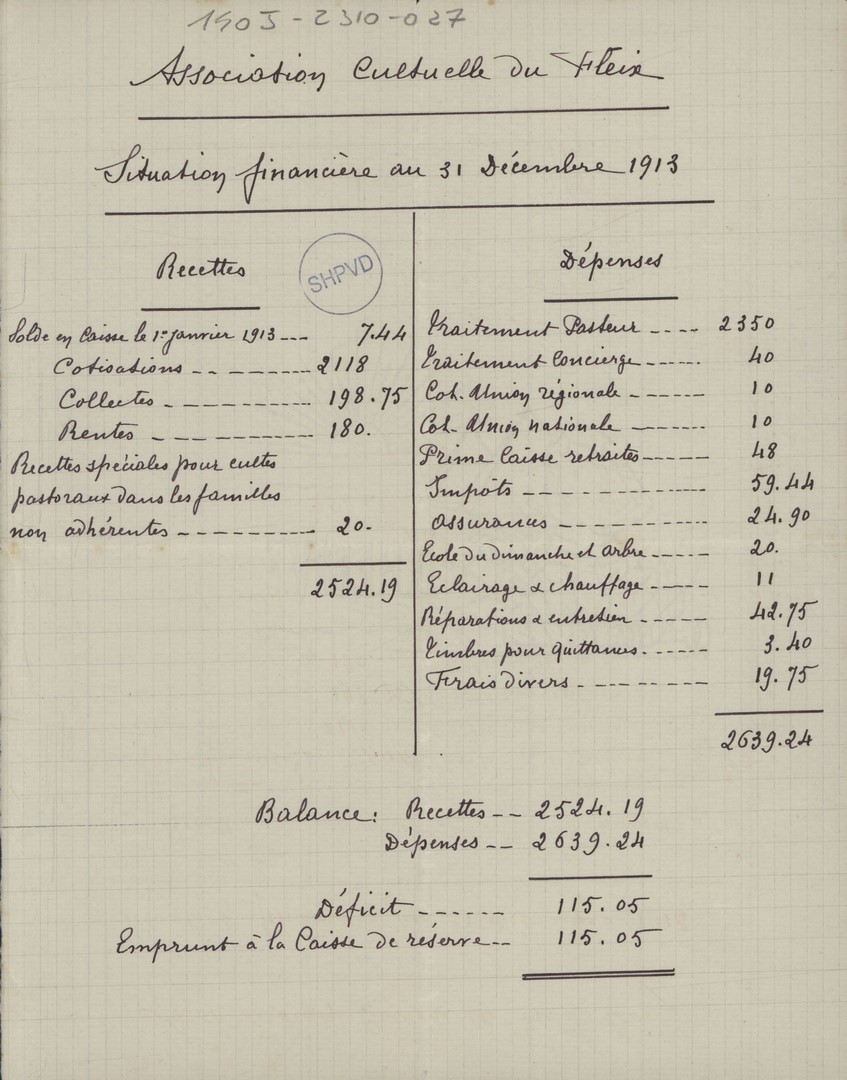 190J-2310-027
Association Cultuelle du Fleix
Situation financière au 31 Décembre 1913
Recettes
SHPVD
Solde en Caisse le 1er janvier 1913 --- 7.44
Cotisations -- ------ 2118
Collectes ---------- 198.75
Rentes ---------- 180.
Recettes spéciales pour cultes
pastoraux dans les familles
non adhérentes ---------- 20-
2524.19
Dépenses
Traitement Pasteur ---- 2350
Traitement Concierge ------ 40
Cot. Union régionale ------ 10
Cot. Union nationale ------ 10
Prime Caisse retraites ------ 48
Impôts ------------ 59.44
Assurances ---------- 24.90
Ecole du dimanche et arbre ----- 20.
Eclairage & chauffage ----- 11
Réparations & entretien ----- 42.75
Timbres pour quittances. ----- 3.40
Frais divers. --------- 19.75
2639.24
Balance: Recettes -- 2524.19
Dépenses -- 2639.24
Déficit ------ 115.05
Emprunt à la Caisse de réserve -- 115.05